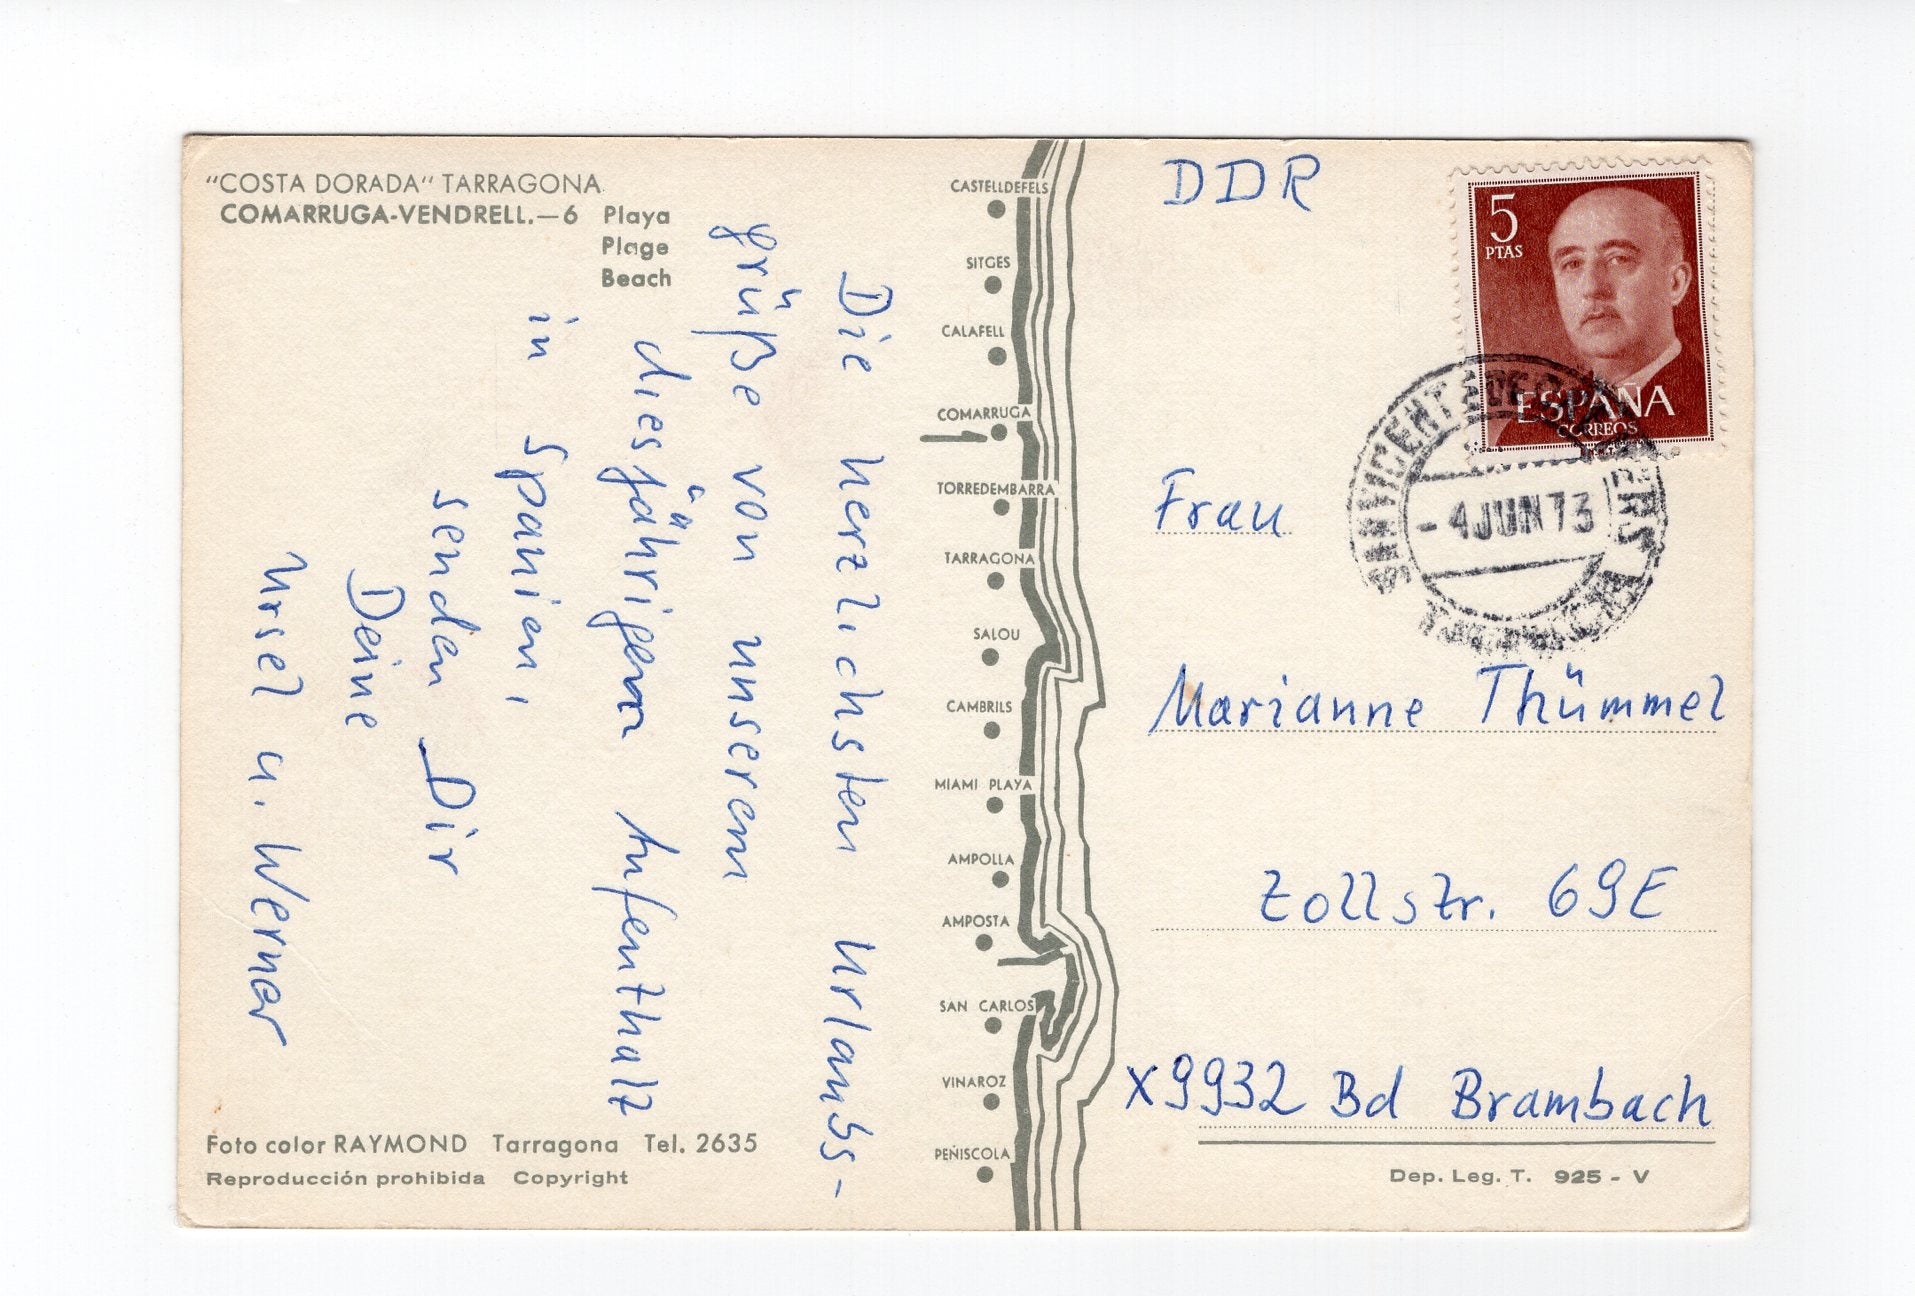 "COSTA DORADA" TARRAGONA
COMARRUGA-VENDRELL.—6 Playa
Plage
Beach
Die herzlichsten Urlaubs-
grüße von unserem
diesjährigen Aufenthalt
in Spanien,
senden Dir
Deine
Ursel u. Werner
Foto color RAYMOND Tarragona Tel. 2635
Reproducción prohibida Copyright
CASTELLDEFELS
SITGES
CALAFELL
COMARRUGA
TORREDEMBARRA
TARRAGONA
SALOU
CAMBRILS
MIAMI PLAYA
AMPOLLA
AMPOSTA
SAN CARLOS
VINAROZ
PEÑISCOLA
DDR
5
PTAS
ESPAÑA
CORREOS
-4 JUN 73
Frau
Marianne Thümmel
Zollstr. 69E
X9932 Bd Brambach
Dep. Leg. T. 925 - V